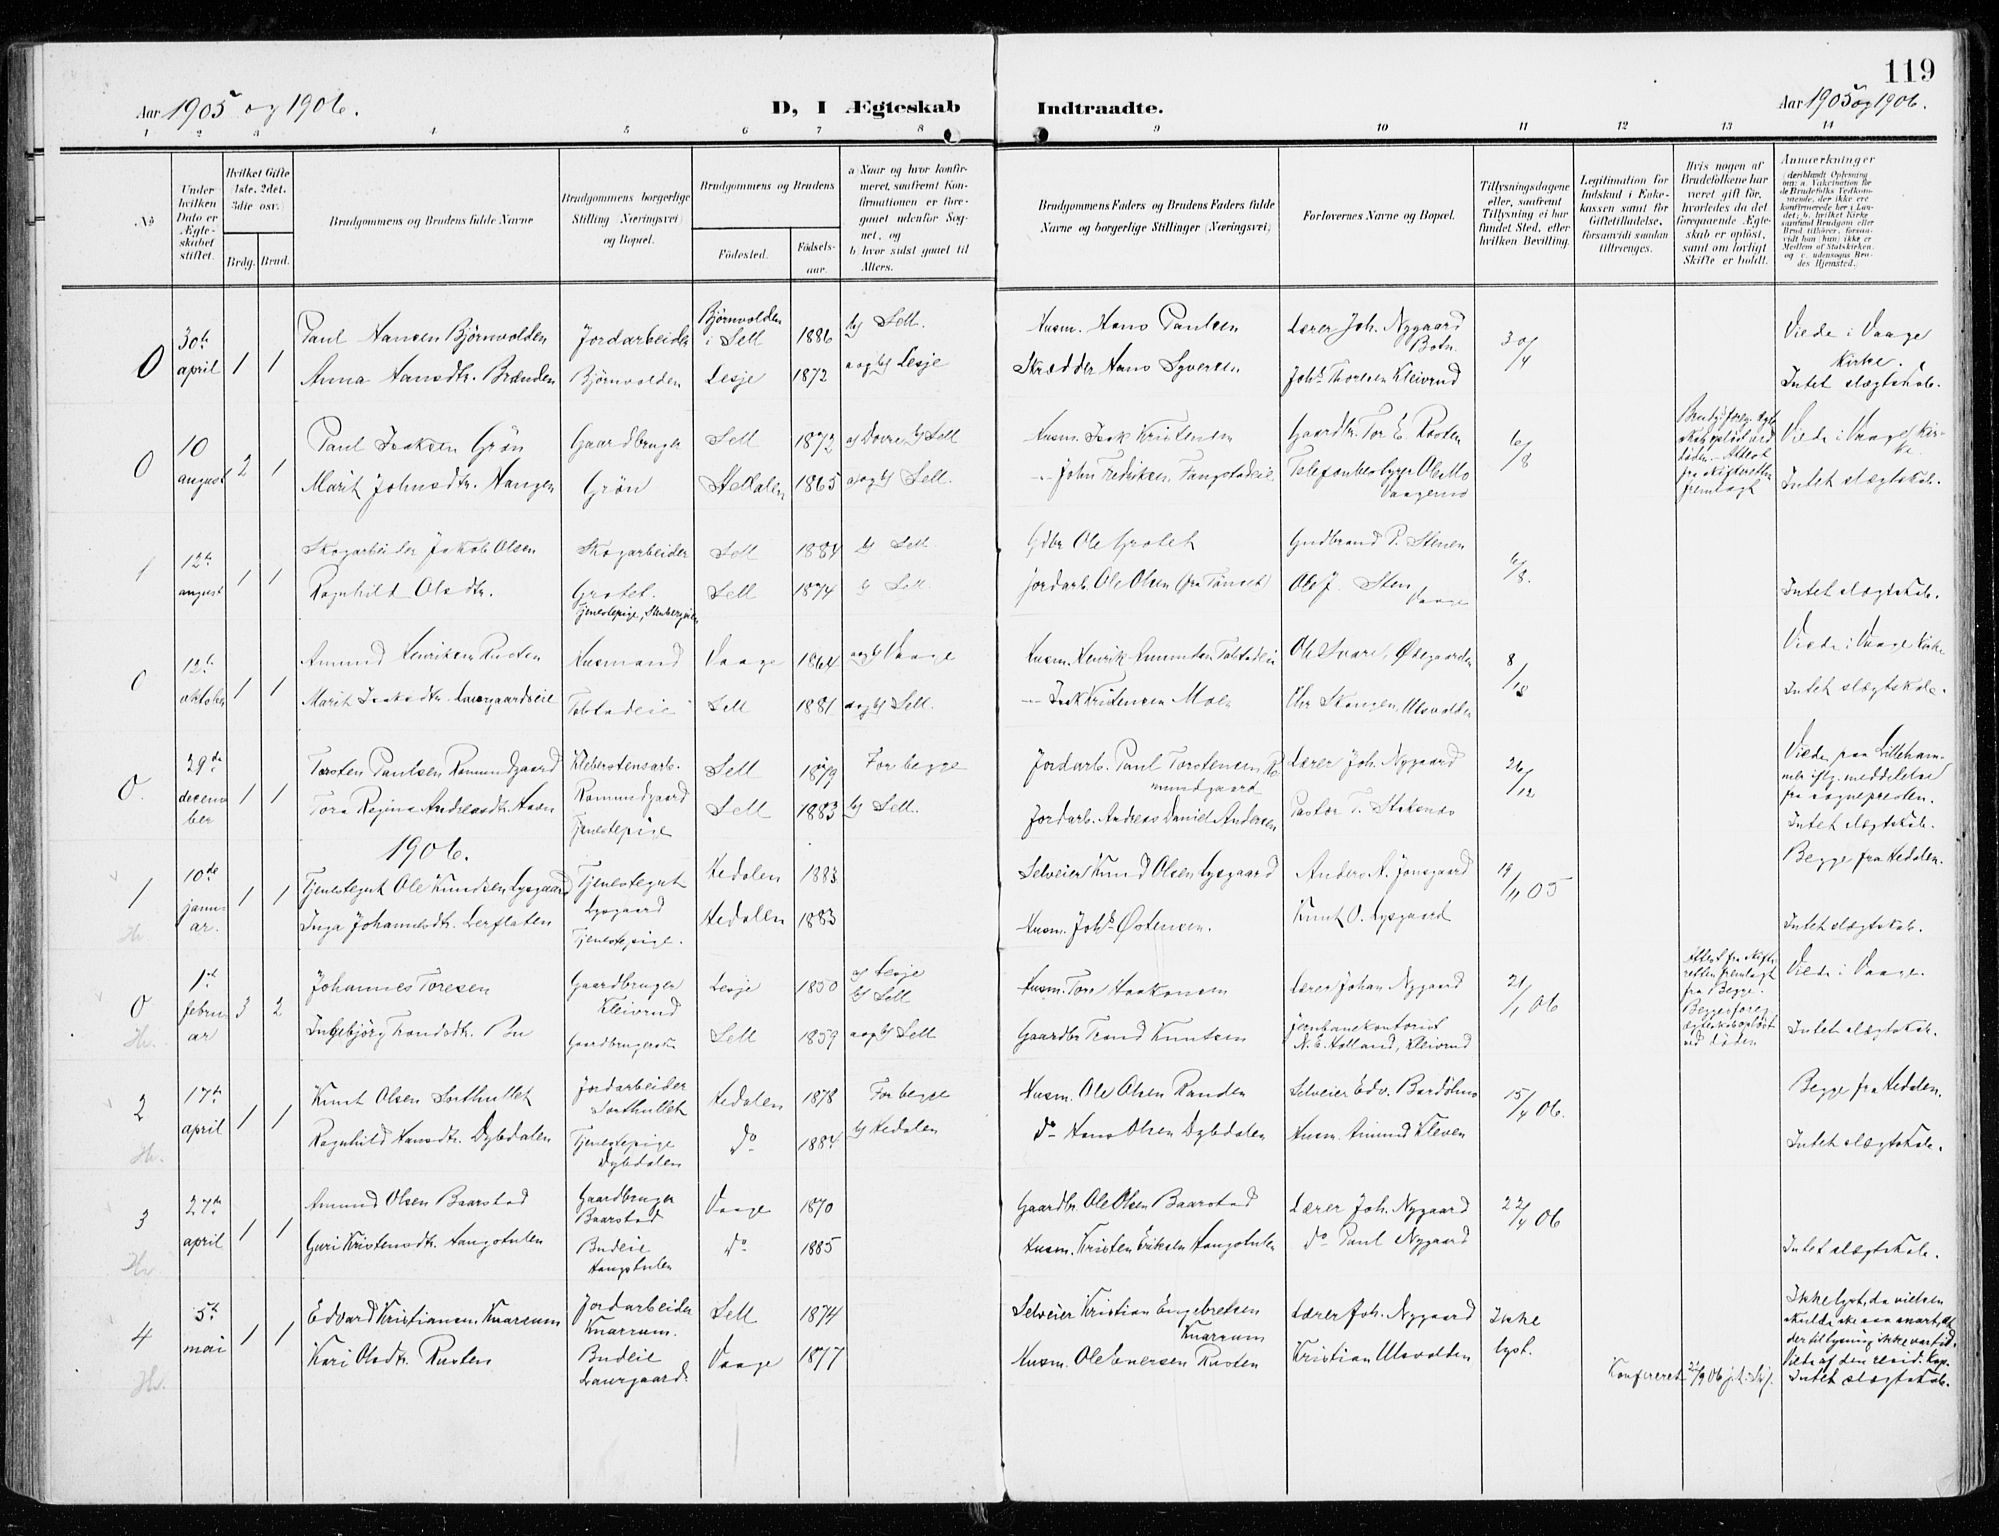 119
Aar 1905 og 1906.
D, I Ægteskab Indtraadte.
Aar 1905 og 1906.
1 2 3 4 5 6 7 8 9 10 11 12 13 14
No
Under hvilken Dato er Ægteskabet stiftet.
Hvilket Gifte 1ste, 2det, 3die osv.)
Brdg. Brud.
Brudgommens og Brudens fulde Navne
Brudgommens borgerlige Stilling Næringsvei) og Bopæl.
Brudgommens og Brudens
Födested. Födselsaar.
a) Naar og hvor konfirmeret, saafremt Konfirmationen er foregaaet udenfor Sognet, og
b) hvor sidst gaaet til Alters.
Brudgommens Faders og Brudens Faders fulde Navne og borgerlige Stillinger (Næringsvei)
Forlovernes Navne og Bopæl.
Tillysningsdagene eller, saafremt Tillysning ei har fundet Sted, efter hvilken Bevilling.
Legitimation for Indskud i Enkekassen samt for Giftetilladelse, forsaavidt saadan tiltrænges.
Hvis nogen af Brudefolkene har været gift för, hvorledes da det foregaaende Ægteskab er oplöst, samt om lovligt Skifte er holdt.
Anmærkninger
0 30te april 1 1
Paul Hansen Bjørnvolden Jordarbeider Bjørnvolden i Sell 1886 b) Sell. Husm. Hans Paulsen Lærer Joh. Nygaard Botn. 30/4 Viede i Vaage Kirke.
Anna Hansdtr. Brænden Bjørnvolden Lesje 1872 a og b) Lesje Skrædder Hans Syversen Johs. Thoresen Kleivrud Intet slægtskab.
0 10 august 2 1
Paul Isaksen Grøn Gaardbruger Sell 1872 a) Dovre b) Sell Husm. Isak Kristensen Gaardbr. Tor E. Rusten 6/8 Viede i Vaage Kirke
Marit Johnsdtr. Haugen Grøn 1865 a og b) Sell. John Fredriksen Ole Mo Intet slægtskab.
1 12te august 1 1
Skogarbeider Jakob Olsen Skogarbeider Sell 1884 b) Sell Gdbr Ole Grotet Gudbrand P. Stenen 6/8.
Ragnhild Olsdtr. Grotet. Sell 1874 b) Sell. Jordarb. Ole Olsen Ole J. Sten Vaage Intet slægtskab.
Tjenestepige,
0 12te oktober 1 1
Amund Henriksen Rusten Husmand Vaage 1864 a og b) Vaage Husm. Henrik Amundsen Tolstadeie Ole Svare, Ødegaarden 8/18 Viede i Vaage Kirke
Marit Isaksdtr. Laurgaardseie Tolstadeie Sell 1881 a og b) Sell. Isak Kristensen Moen Intet slægtskab.
0. 29de december 1 1
Torsten Paulsen Romundgaard Klebersteinsarb. Sell 1879 For begge Jordarb. Paul Torstensen Romundgaard Lærer Joh. Nygaard 26/12 Viede paa Lillehammer iflg. meddelelse fra sognepresten.
Tora Regine Andreasdtr. Romundgaard Tjenestepige Sell 1883 b) Sell. Jordarb. Andreas Daniel Andersen Pastor T. Intet slægtskab.
1906.
1 10de januar. 1 1
Tjenestegut Ole Knudsen Lysgaard Tjenestegut Lysgaard Hedalen 1883 Selveier Knud Olsen Lysgaard Anders A. Jonsgaard 19/11 05 Begge fra Hedalen.
Inga Johannesdtr. Lerflaten Tjenestepige. Hedalen 1883 Husm. Johs. Østensen. Knut O. Lysgaard Intet slægtskab.
0 1ste februar 3 2
Johannes Toresen Gaardbruger Kleivrud Lesje 1850 a) Lesje b) Sell Husm. Tore Haakonsen Lærer Johan Nygaard 21/1 06 Attest fra skifteretten fremlagt fra Begge. Viede i Vaage.
Ingebjörg Trondsdtr. Bu Sell 1859 a og b) Sell Gaardbr Trond Knutsen jernbanekontorist N. E. Holland, Kleivrud Intet slægtskab.
2 17te april 1 1
Knut Olsen Sorthullet Jordarbeider Sorthullet Hedalen 1878 For begge Husm. Ole Olsen Randen Selveier Edv. Bardølmo 15/4 06. Begge fra Hedalen.
Ragnhild Hansdtr. Dybdalen Tjenestepige Dybdalen do 1884 b) Hedalen do Hans Olsen Dybdalen Husm. Amund Kleven Intet slægtskab.
3 27de april 1 1
Amund Olsen Baarstad Gaardbruger Baarstad Vaage 1870 Gaardbr. Ole Olsen Baarstad Lærer Joh. Nygaard 22/4 06
Guri Kristensdtr. Haugstulen Budeie Haugstulen do 1885 Husm. Kristen Eriksen Haugstulen do Paul Nygaard Intet slægtskab.
4 5te mai 1 1
Edvard Kristiansen Knarrum Jordarbeider Knarrum. Sell 1874 Selveier Kristian Engebretsen Knarrum Lærer Joh. Nygaard Ikke lyst.
Kari Olsdtr. Rusten Budeie Laurgaard. Vaage 1877 Husm. Ole Enersen Rusten Kristian Ulsvolden Intet slægtskab.
Konfereret 22/9 06